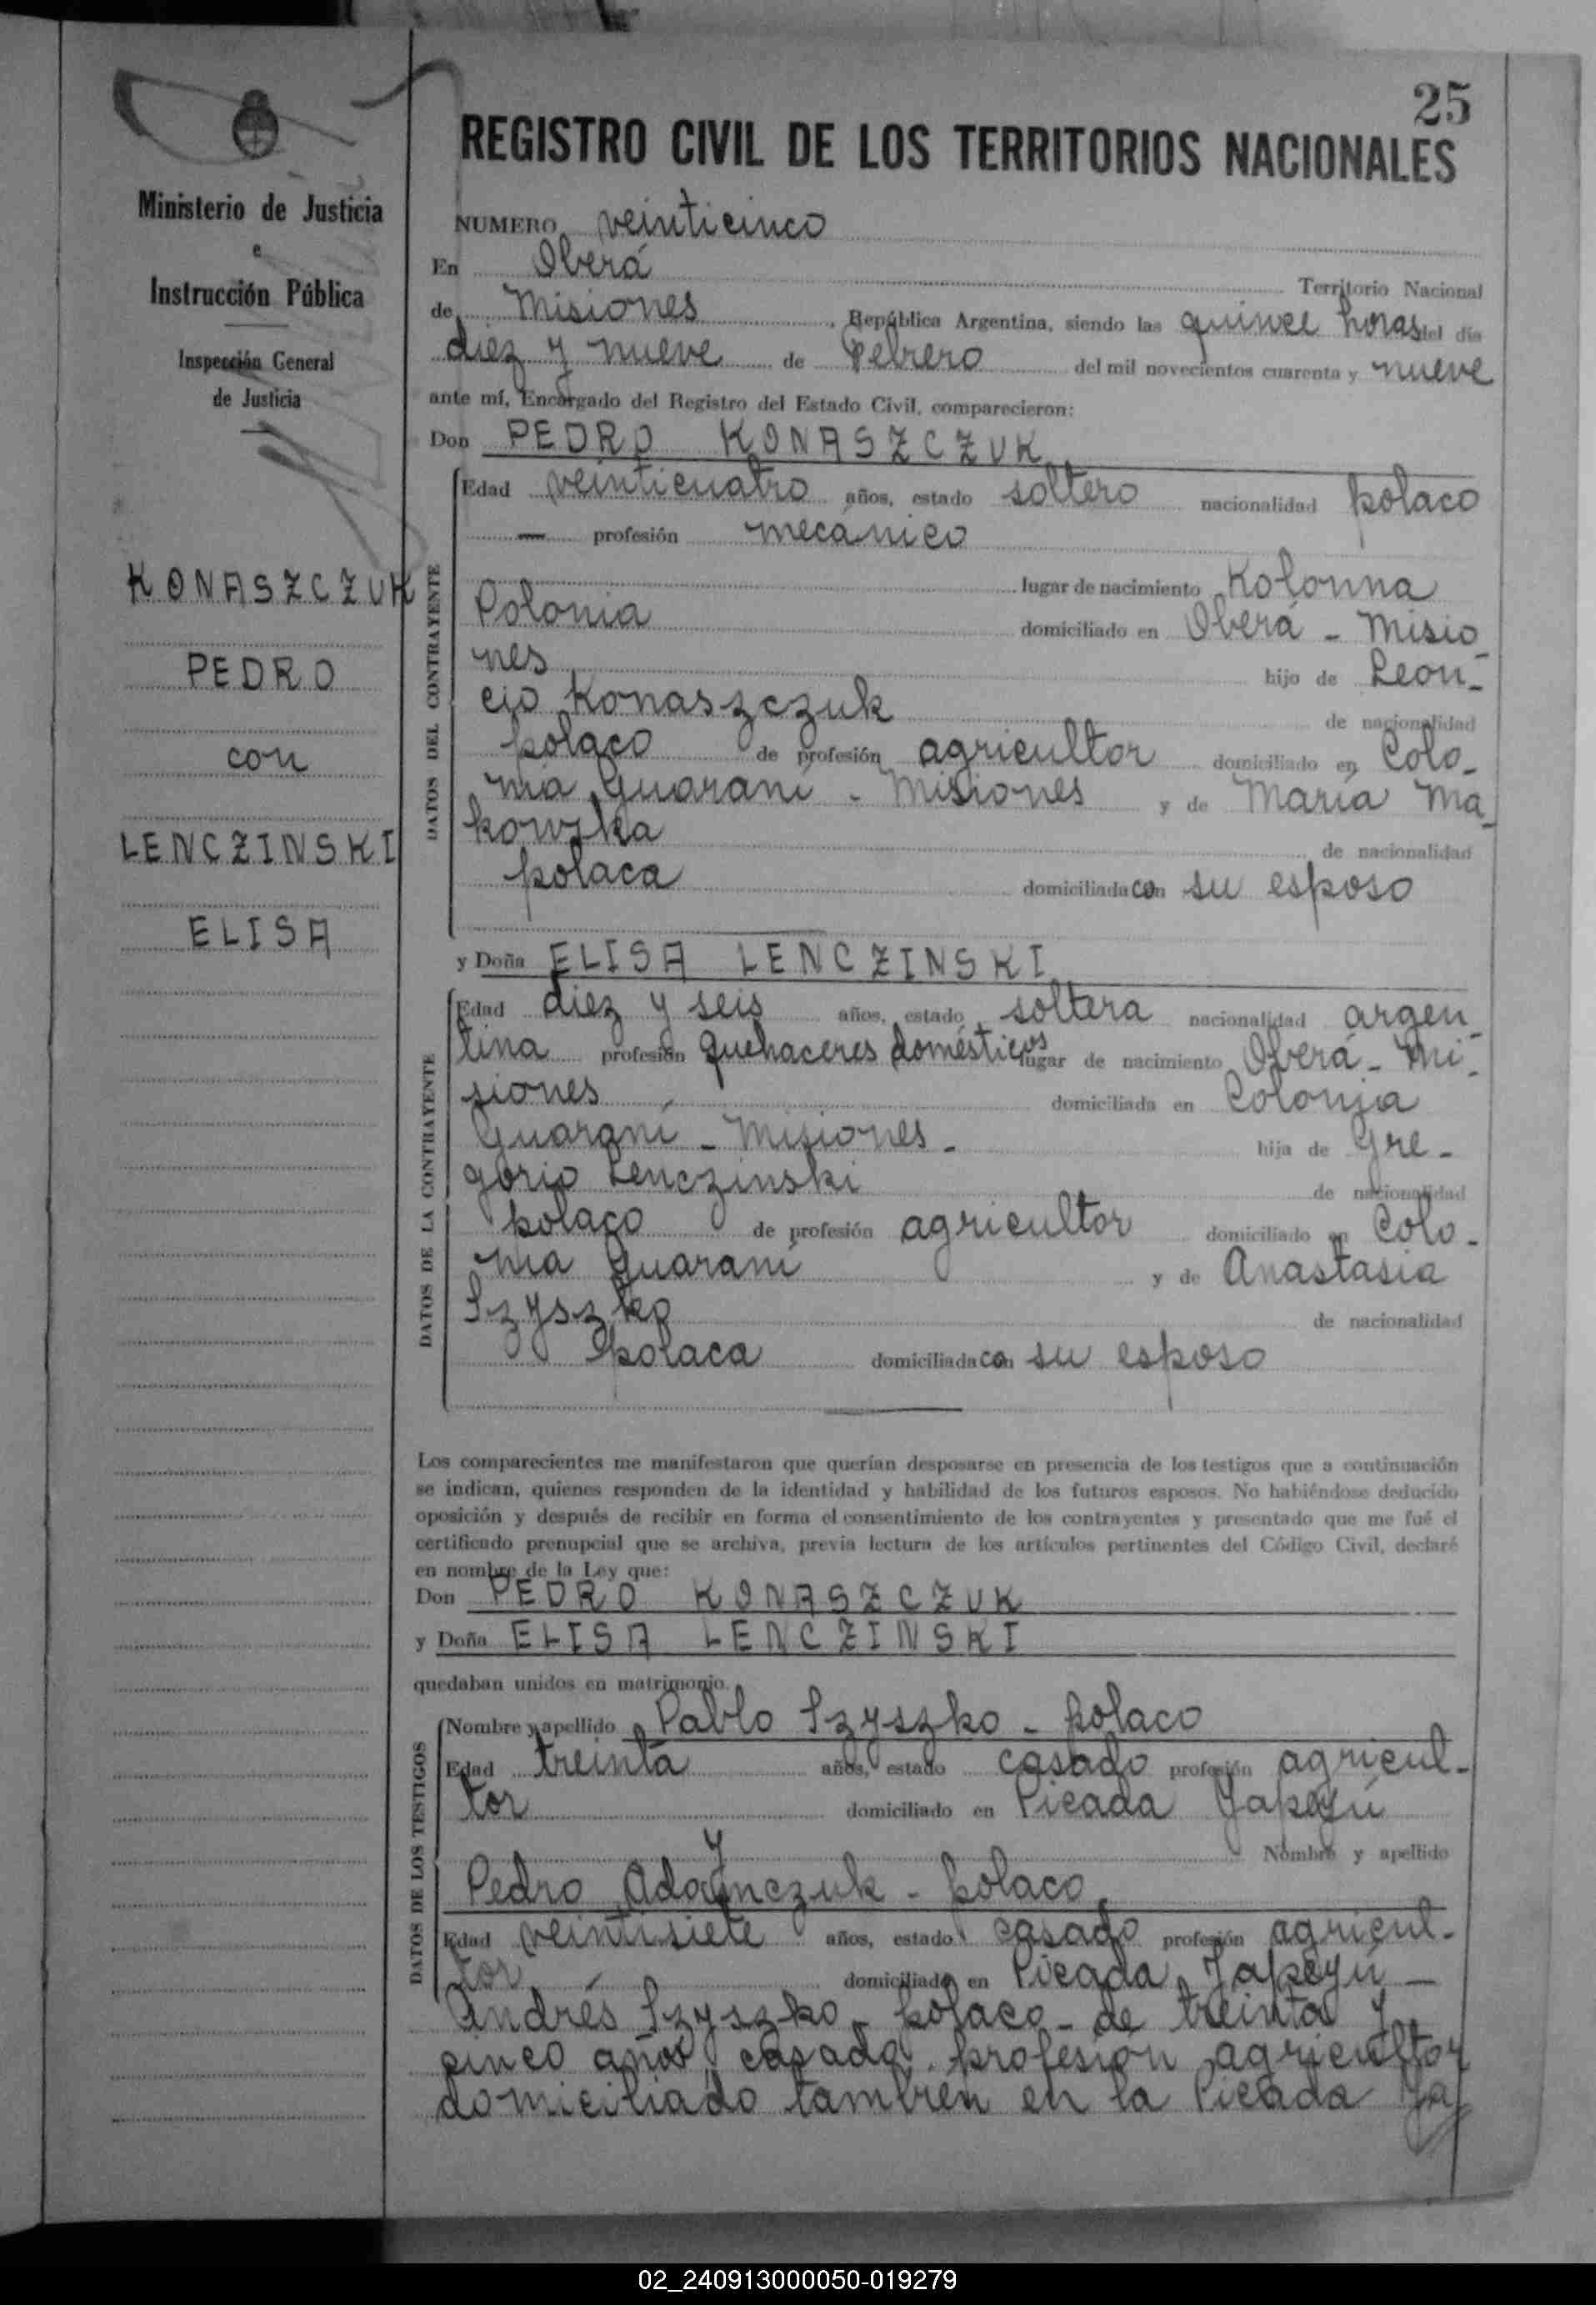 25
REGISTRO CIVIL DE LOS TERRITORIOS NACIONALES
Ministerio de Justicia
e
Instrucción Pública
Inspección General
de Justicia
KONASZCZUK
PEDRO
con
LENCZINSKI
ELISA
NUMERO veinticinco
En Oberá Territorio Nacional
de Misiones, República Argentina, siendo las quince horas del día
diez y nueve de Febrero del mil novecientos cuarenta y nueve
ante mí, Encargado del Registro del Estado Civil, comparecieron:
Don PEDRO KONASZCZUK
DATOS DEL CONTRAYENTE
Edad veinticuatro años, estado soltero nacionalidad polaco
— profesión mecánico
lugar de nacimiento Kolonna
Polonia domiciliado en Oberá - Misio-
nes hijo de Leon-
cio Konaszczuk de nacionalidad
polaco de profesión agricultor domiciliado en Colo-
nia Guaraní - Misiones y de María Ma-
kowska de nacionalidad
polaca domiciliada con su esposo
y Doña ELISA LENCZINSKI
DATOS DE LA CONTRAYENTE
Edad diez y seis años, estado soltera nacionalidad argen-
tina profesión quehaceres domésticos lugar de nacimiento Oberá - Mi-
siones domiciliada en Colonia
Guaraní - Misiones - hija de Gre-
gorio Lenczinski de nacionalidad
polaco de profesión agricultor domiciliado en Colo-
nia Guaraní y de Anastasia
Szyszko de nacionalidad
polaca domiciliada con su esposo
Los comparecientes me manifestaron que querían desposarse en presencia de los testigos que a continuación
se indican, quienes responden de la identidad y habilidad de los futuros esposos. No habiéndose deducido
oposición y después de recibir en forma el consentimiento de los contrayentes y presentado que me fué el
certificado prenupcial que se archiva, previa lectura de los artículos pertinentes del Código Civil, declaré
en nombre de la Ley que:
Don PEDRO KONASZCZUK
y Doña ELISA LENCZINSKI
quedaban unidos en matrimonio.
DATOS DE LOS TESTIGOS
Nombre y apellido Pablo Szyszko - polaco
Edad treinta años, estado casado profesión agricul-
tor domiciliado en Picada Yapeyú
y Nombre y apellido
Pedro Adamczuk - polaco
Edad veintisiete años, estado casado profesión agricul-
tor domiciliado en Picada Yapeyú -
Andrés Szyszko - polaco - de treinta y
cinco años, casado, profesión agricultor
domiciliado también en la Picada Ya
02_240913000050-019279